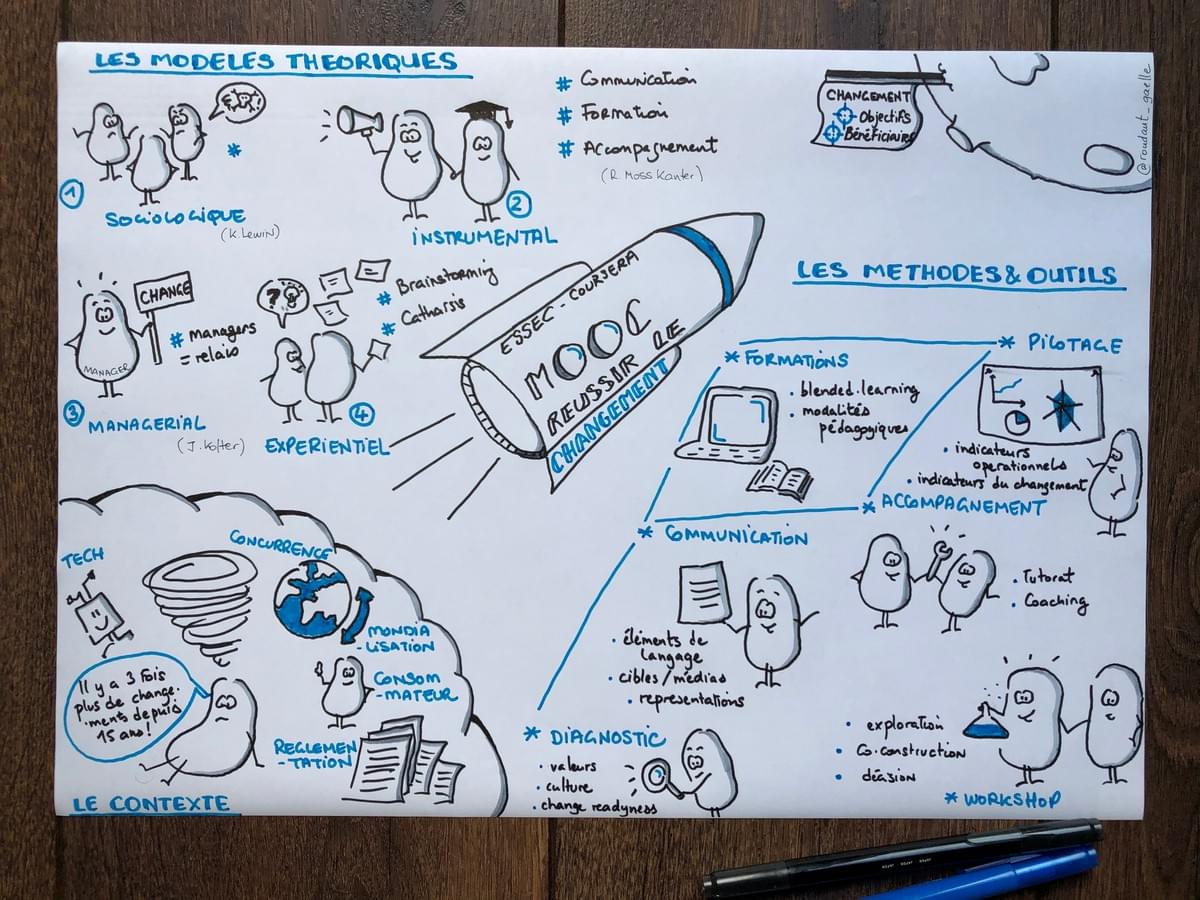 LES MODELES THEORIQUES
1
SOCIOLOGIQUE
(K. Lewin)
2
INSTRUMENTAL
# Communication
# Formation
# Accompagnement
(R Moss Kanter)
CHANGEMENT
Objectifs
Bénéficiaire
@roudaut_gaelle
CHANGE
MANAGER
# managers
= relais
3
MANAGERIAL
(J. Kotter)
?
# Brainstorming
# Catharsis
4
EXPERIENTIEL
ESSEC - COURSERA
MOOC
REUSSIR LE
CHANGEMENT
LES METHODES & OUTILS
* FORMATIONS
• blended.learning
• modalités
pédagogiques
* PILOTAGE
• indicateurs
operationnels
• indicateurs du changement
* ACCOMPAGNEMENT
• Tutorat
• Coaching
* COMMUNICATION
• éléments de
langage
• cibles/médias
• representations
* DIAGNOSTIC
• valeurs
• culture
• change readyness
• exploration
• Co-construction
• décision
* WORKSHOP
TECH
CONCURRENCE
MONDIA
-LISATION
CONSOM
-MATEUR
REGLEMEN
-TATION
Il y a 3 fois
plus de change-
ments depuis
15 ans !
LE CONTEXTE